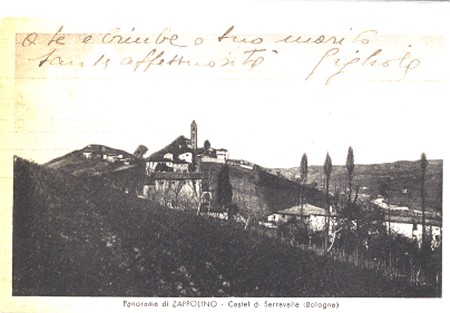 a te e bimbe e tuo marito
tante affettuosità Gigliola
Panorama di ZAPPOLINO - Castel di Serravalle (Bologna)